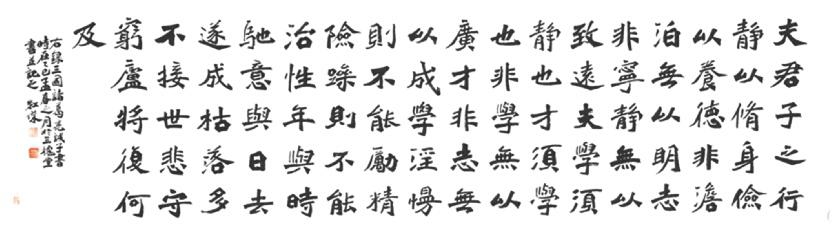 夫君子之行
静以脩身儉
以養德非澹
泊無以明志
非寧静無以
致遠夫學須
静也才須學
也非學無以
廣才非志無
以成學淫慢
則不能勵精
險躁則不能
治性年與時
馳意與日去
遂成枯落多
不接世悲守
窮廬將復何
及
右錄三國諸葛亮誡子書
乙巳孟春之月於三槐堂
書並記之